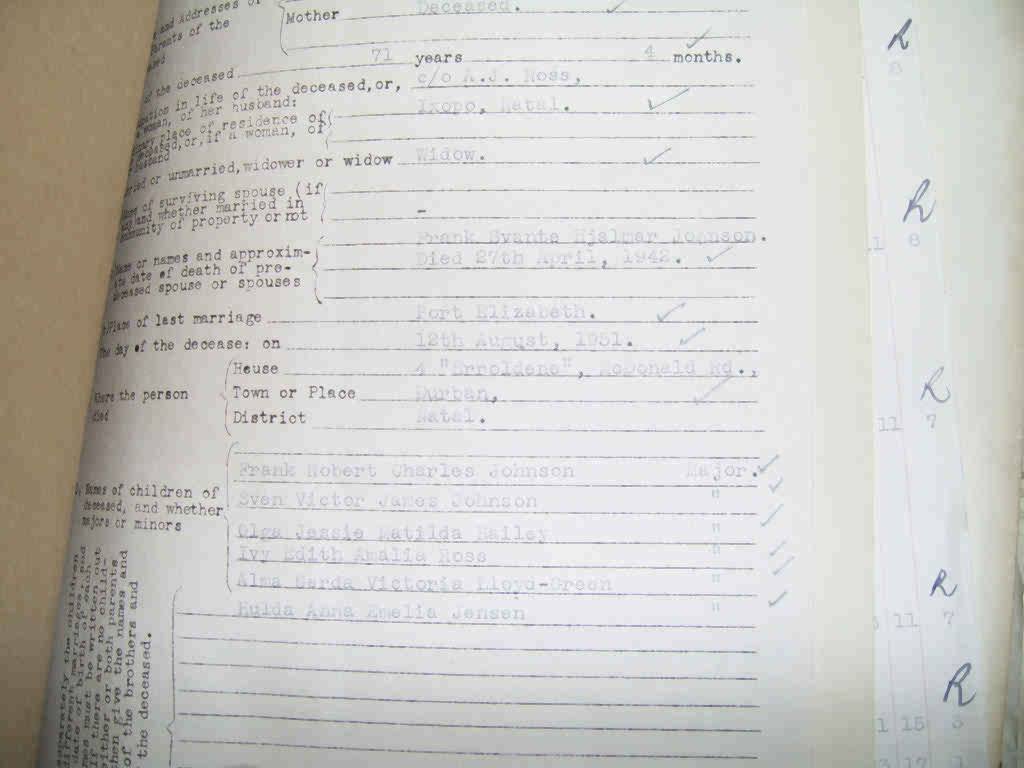 and Addresses of
Parents of the
Mother Deceased.
of the deceased 71 years 4 months.
ation in life of the deceased, or, c/o A.J. Ross,
a woman, of her husband: Ixopo, Natal.
place of residence of
deceased, or, if a woman, of
husband
or unmarried, widower or widow Widow.
of surviving spouse (if
any) and whether married in
community of property or not -
Name or names and approxim- Frank Svante Hjalmar Johnson.
ate date of death of pre- Died 27th April, 1942.
deceased spouse or spouses
Place of last marriage Port Elizabeth.
The day of the decease: on 12th August, 1951.
House 4 "Erroldene", McDonald Rd.,
Where the person Town or Place Durban,
died District Natal.
Frank Robert Charles Johnson Major.
Names of children of Sven Victor James Johnson "
deceased, and whether
majors or minors Olga Jessie Matilda Bailey "
Ivy Edith Amalia Ross "
Alma Gerda Victoria Lloyd-Green "
Hulda Anna Emelia Jensen "
separately the children
different marriages, and
date of birth of each.
mes must be written out
If there are no child-
either or both parents
then give the names and
of the brothers and
the deceased.
R
8
R
8
R
11 7
R
11 7
R
15 3
17